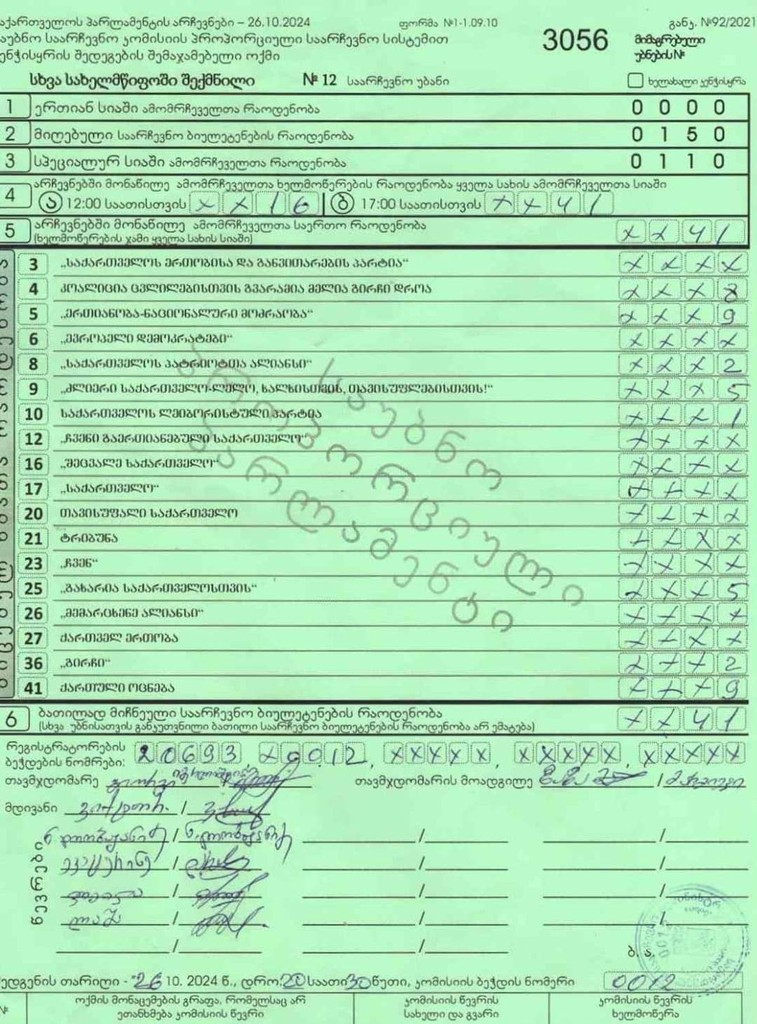 საქართველოს პარლამენტის არჩევნები – 26.10.2024 ფორმა №1-1.09.10 განკ. №92/2021
საუბნო საარჩევნო კომისიის პროპორციული საარჩევნო სისტემით 3056 მიმაგრებული
კენჭისყრის შედეგების შემაჯამებელი ოქმი უბნების№
სხვა სახელმწიფოში შექმნილი № 12 საარჩევნო უბანი ხელახალი კენჭისყრა
1 ერთიან სიაში ამომრჩეველთა რაოდენობა 0 0 0 0
2 მიღებული საარჩევნო ბიულეტენების რაოდენობა 0 1 5 0
3 სპეციალურ სიაში ამომრჩეველთა რაოდენობა 0 1 1 0
4 არჩევნებში მონაწილე ამომრჩეველთა ხელმოწერების რაოდენობა ყველა სახის ამომრჩეველთა სიაში
ა 12:00 საათისთვის x x 1 6 | ბ 17:00 საათისთვის x x 4 1
5 არჩევნებში მონაწილე ამომრჩეველთა საერთო რაოდენობა x x 4 1
(ხელმოწერების ჯამი ყველა სახის სიაში)
3 „საქართველოს ერთობისა და განვითარების პარტია“ x x x x
4 კოალიცია ცვლილებისთვის გვარამია მელია გირჩი დროა x x x 8
5 „ერთიანობა-ნაციონალური მოძრაობა“ x x x 9
6 „ევროპელი დემოკრატები“ x x x x
8 „საქართველოს პატრიოტთა ალიანსი“ x x x 2
9 „ძლიერი საქართველო-ლელო, ხალხისთვის, თავისუფლებისთვის!“ x x x 5
10 საქართველოს ლეიბორისტული პარტია x x x 1
12 „ჩვენი გაერთიანებული საქართველო“ x x x x
16 „შეცვალე საქართველო“ x x x x
17 „საქართველო“ x x x x
20 თავისუფალი საქართველო x x x x
21 ტრიბუნა x x x x
23 „ჩვენ“ x x x x
25 „გახარია საქართველოსთვის“ x x x 5
26 „მემარცხენე ალიანსი“ x x x x
27 ქართველ ერთობა x x x x
36 „გირჩი“ x x x 2
41 ქართული ოცნება x x x 9
საუბნო
პროპორციული
პარლამენტი
6 ბათილად მიჩნეული საარჩევნო ბიულეტენების რაოდენობა x x 4 1
(სხვა უბნისათვის განკუთვნილი ბათილი საარჩევნო ბიულეტენების რაოდენობა არ ემატება)
რეგისტრატორების
ბეჭდების ნომრები: 20693 x0012, xxxxx, xxxxx, xxxxx
თავმჯდომარე / თავმჯდომარის მოადგილე /
მდივანი /
წევრები
ბ. ა.
შედგენის თარიღი - "26" 10. 2024 წ., დრო: 20 საათი 30 წუთი, კომისიის ბეჭდის ნომერი 0012
№ ოქმის მონაცემების გრაფა, რომელსაც არ კომისიის წევრის კომისიის წევრის
ეთანხმება კომისიის წევრი სახელი და გვარი ხელმოწერა